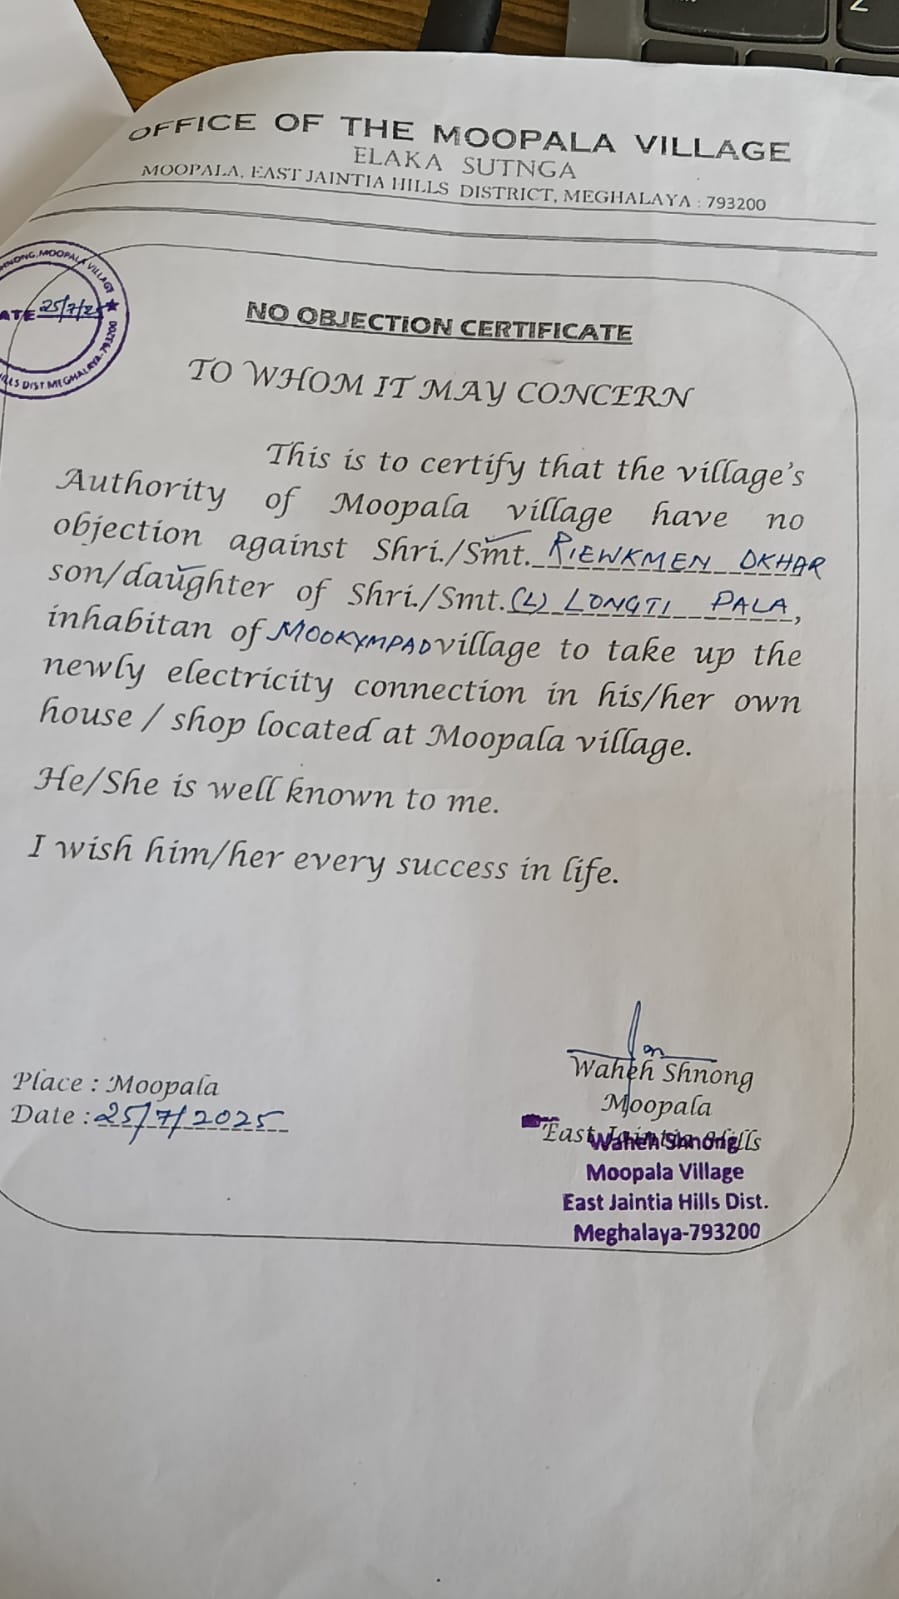 OFFICE OF THE MOOPALA VILLAGE
ELAKA SUTNGA
MOOPALA, EAST JAINTIA HILLS DISTRICT, MEGHALAYA : 793200
SHNONG, MOOPALA VILLAGE
DATE 25/7/25
HILLS DIST. MEGHALAYA-793200
NO OBJECTION CERTIFICATE
TO WHOM IT MAY CONCERN
This is to certify that the village's
Authority of Moopala village have no
objection against Shri./Smt. RIEWKMEN DKHAR
son/daughter of Shri./Smt. (L) LONGTI PALA,
inhabitan of MOOKYMPAD village to take up the
newly electricity connection in his/her own
house / shop located at Moopala village.
He/She is well known to me.
I wish him/her every success in life.
Place : Moopala
Date : 25/7/2025
Waheh Shnong
Moopala
East Jaintia Hills
Waheh Shnong
Moopala Village
East Jaintia Hills Dist.
Meghalaya-793200